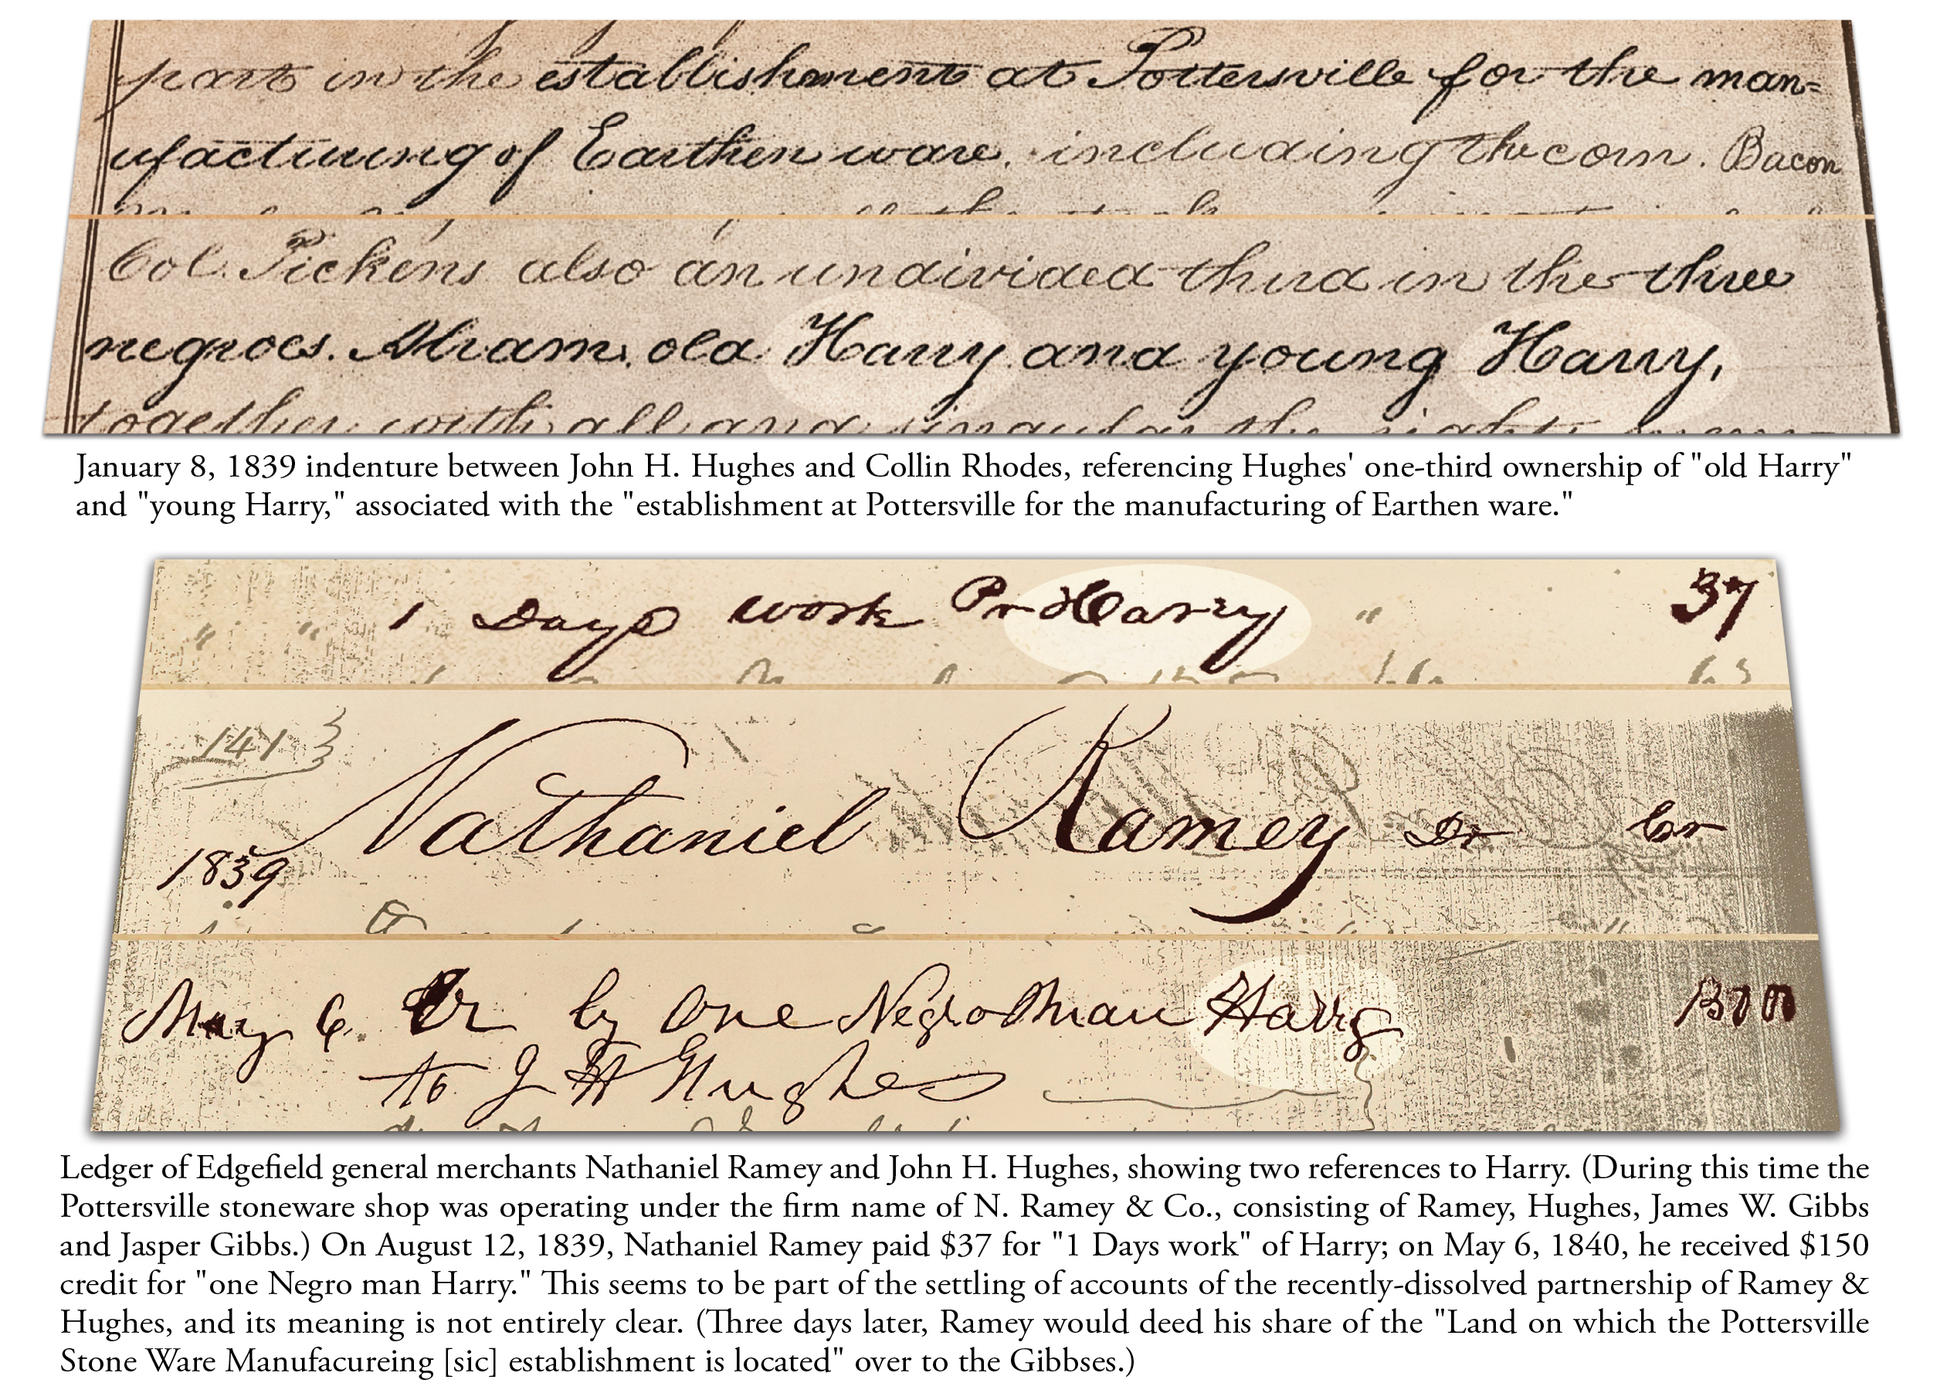 part in the establishment at Pottersville for the man=
ufacturing of Earthen ware. including the corn. Bacon
Col. Pickens also an undivided third in the three
negroes. Abram. old Harry and young Harry,
together with all and singular the rights
January 8, 1839 indenture between John H. Hughes and Collin Rhodes, referencing Hughes' one-third ownership of "old Harry"
and "young Harry," associated with the "establishment at Pottersville for the manufacturing of Earthen ware."
" " 1 Days work Pr Harry " 37
141
Nathaniel Ramey Dr Cr
1839
May 6. Cr by One Negro Man Harry
to J H Hughes
Ledger of Edgefield general merchants Nathaniel Ramey and John H. Hughes, showing two references to Harry. (During this time the
Pottersville stoneware shop was operating under the firm name of N. Ramey & Co., consisting of Ramey, Hughes, James W. Gibbs
and Jasper Gibbs.) On August 12, 1839, Nathaniel Ramey paid $37 for "1 Days work" of Harry; on May 6, 1840, he received $150
credit for "one Negro man Harry." This seems to be part of the settling of accounts of the recently-dissolved partnership of Ramey &
Hughes, and its meaning is not entirely clear. (Three days later, Ramey would deed his share of the "Land on which the Pottersville
Stone Ware Manufacureing [sic] establishment is located" over to the Gibbses.)